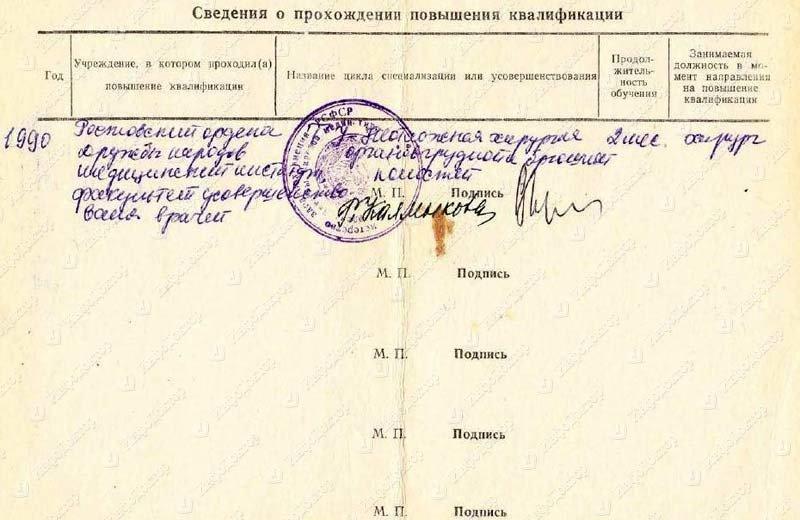 Сведения о прохождении повышения квалификации
Год
Учреждение, в котором проходил(а)
повышение квалификации
Название цикла специализации или усовершенствования
Продол-
житель-
ность
обучения
Занимаемая
должность в мо-
мент направления
на повышение
квалификации
1990 Ростовский ордена Неотложная хирургия 2 мес. хирург
дружбы народов органов грудной и брюшной
медицинский институт полостей
факультет усовершенство М. П. Подпись
вания врачей
М. П. Подпись
М. П. Подпись
М. П. Подпись
М. П. Подпись